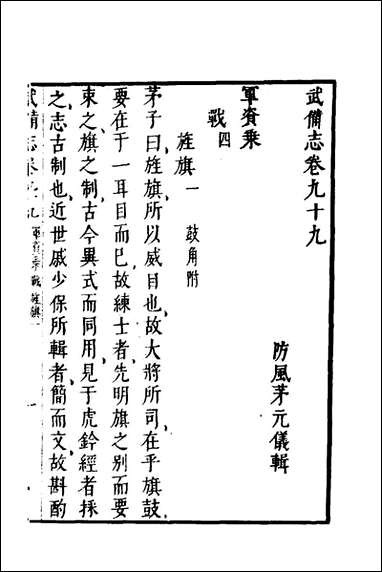 武備志卷九十九
防風茅元儀輯
軍資乗
戰四
旌旗一 鼓角附
茅子曰旌旗所以威目也故大將所司在乎旗鼓
要在于一耳目而已故練士者先明旗之別而要
束之旗之制古今異式而同用見于虎鈐經者採
之志古制也近世戚少保所輯者簡而文故斟酌
武備志卷九十九 軍資乗 戰 旌旗一 一